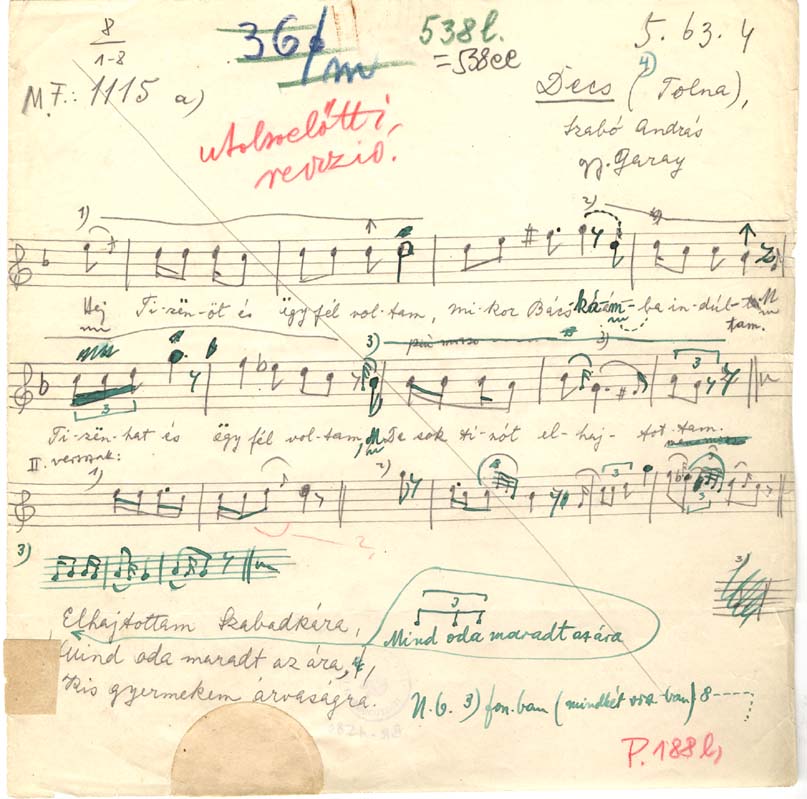 8
1-8
36/m
538l.
=538ee
5. 63. 4
M.F.: 1115 a)
4)
Decs (Tolna),
Szabó András
gy. Garay
utolsóelőtti
revizió.
1) 2)
Hej Ti-zën-öt és ëgy fél vol-tam, mi-kor Bács-ká-ba in-dúl-tam.
3) più mosso 3)
3 3
Ti-zën-hat és ëgy fél vol-tam, De sok ti-nót el-haj-tot-tam.
II. versszak:
1) 2) 3 3
3)
3)
3
Elhajtottam Szabadkára,
Mind oda maradt az ára
Mind oda maradt az ára,
Kis gyermekem árvaságra.
N.B. 3) fon.ban (mindkét vsz.-ban) 8
P.188l,